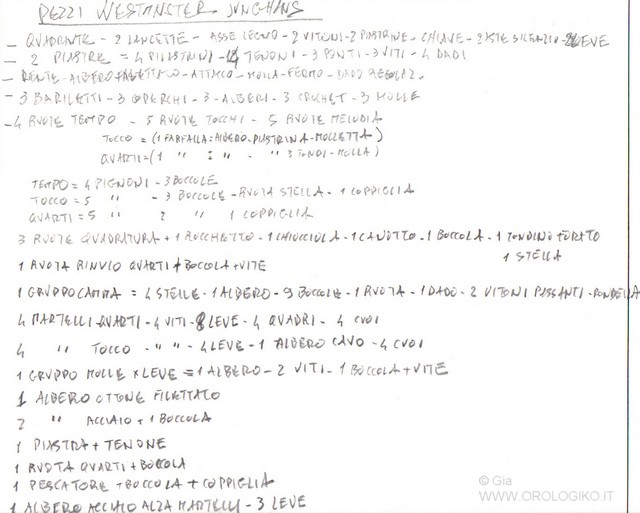 PEZZI WESTMINSTER JUNGHANS
- QUADRANTE - 2 LANCETTE - ASSE LEGNO - 2 VITONI - 2 PIASTRINE - CHIAVE - 2 ASTE SILENZIO - 2 LEVE
- 2 PIASTRE = 4 PILASTRINI - 4 TENONI - 3 PONTI - 3 VITI - 4 DADI
- ALBERO - ATTACCO - MOLLA - FERMO - DADO REGOLAZ.
- 3 BARILETTI - 3 COPERCHI - 3 ALBERI - 3 CROCHET - 3 MOLLE
- 4 RUOTE TEMPO - 5 RUOTE TOCCHI - 5 RUOTE MELODIA
TOCCO = (1 FARFALLA = ALBERO - PIASTRINA - MOLLETTA)
QUARTI = (1 " 1 " - " 3 TONDI - MOLLA)
TEMPO = 4 PIGNONI - 3 BOCCOLE
TOCCO = 5 " - 3 BOCCOLE - RUOTA STELLA - 1 COPPIGLIA
QUARTI = 5 " 2 " 1 COPPIGLIA
3 RUOTE QUADRATURA + 1 ROCCHETTO - 1 CHIOCCIOLA - 1 CANOTTO - 1 BOCCOLA - 1 TONDINO FORATO
1 STELLA
1 RUOTA RINVIO QUARTI + BOCCOLA + VITE
1 GRUPPO CAMMA = 4 STELLE - 1 ALBERO - 9 BOCCOLE - 1 RUOTA - 1 DADO - 2 VITONI PASSANTI - RONDELLA
4 MARTELLI QUARTI - 4 VITI - 8 LEVE - 4 QUADRI - 4 CUOI
4 " TOCCO - " " - 4 LEVE - 1 ALBERO CAVO - 4 CUOI
1 GRUPPO MOLLE X LEVE = 1 ALBERO - 2 VITI - 1 BOCCOLA + VITE
1 ALBERO OTTONE FILETTATO
2 " ACCIAIO + 1 BOCCOLA
1 PIASTRA + TENONE
1 RUOTA QUARTI + BOCCOLA
1 PESCATORE + BOCCOLA + COPPIGLIA
1 ALBERO ACCIAIO ALZA MARTELLI - 3 LEVE
© Gia
WWW.OROLOGIKO.IT